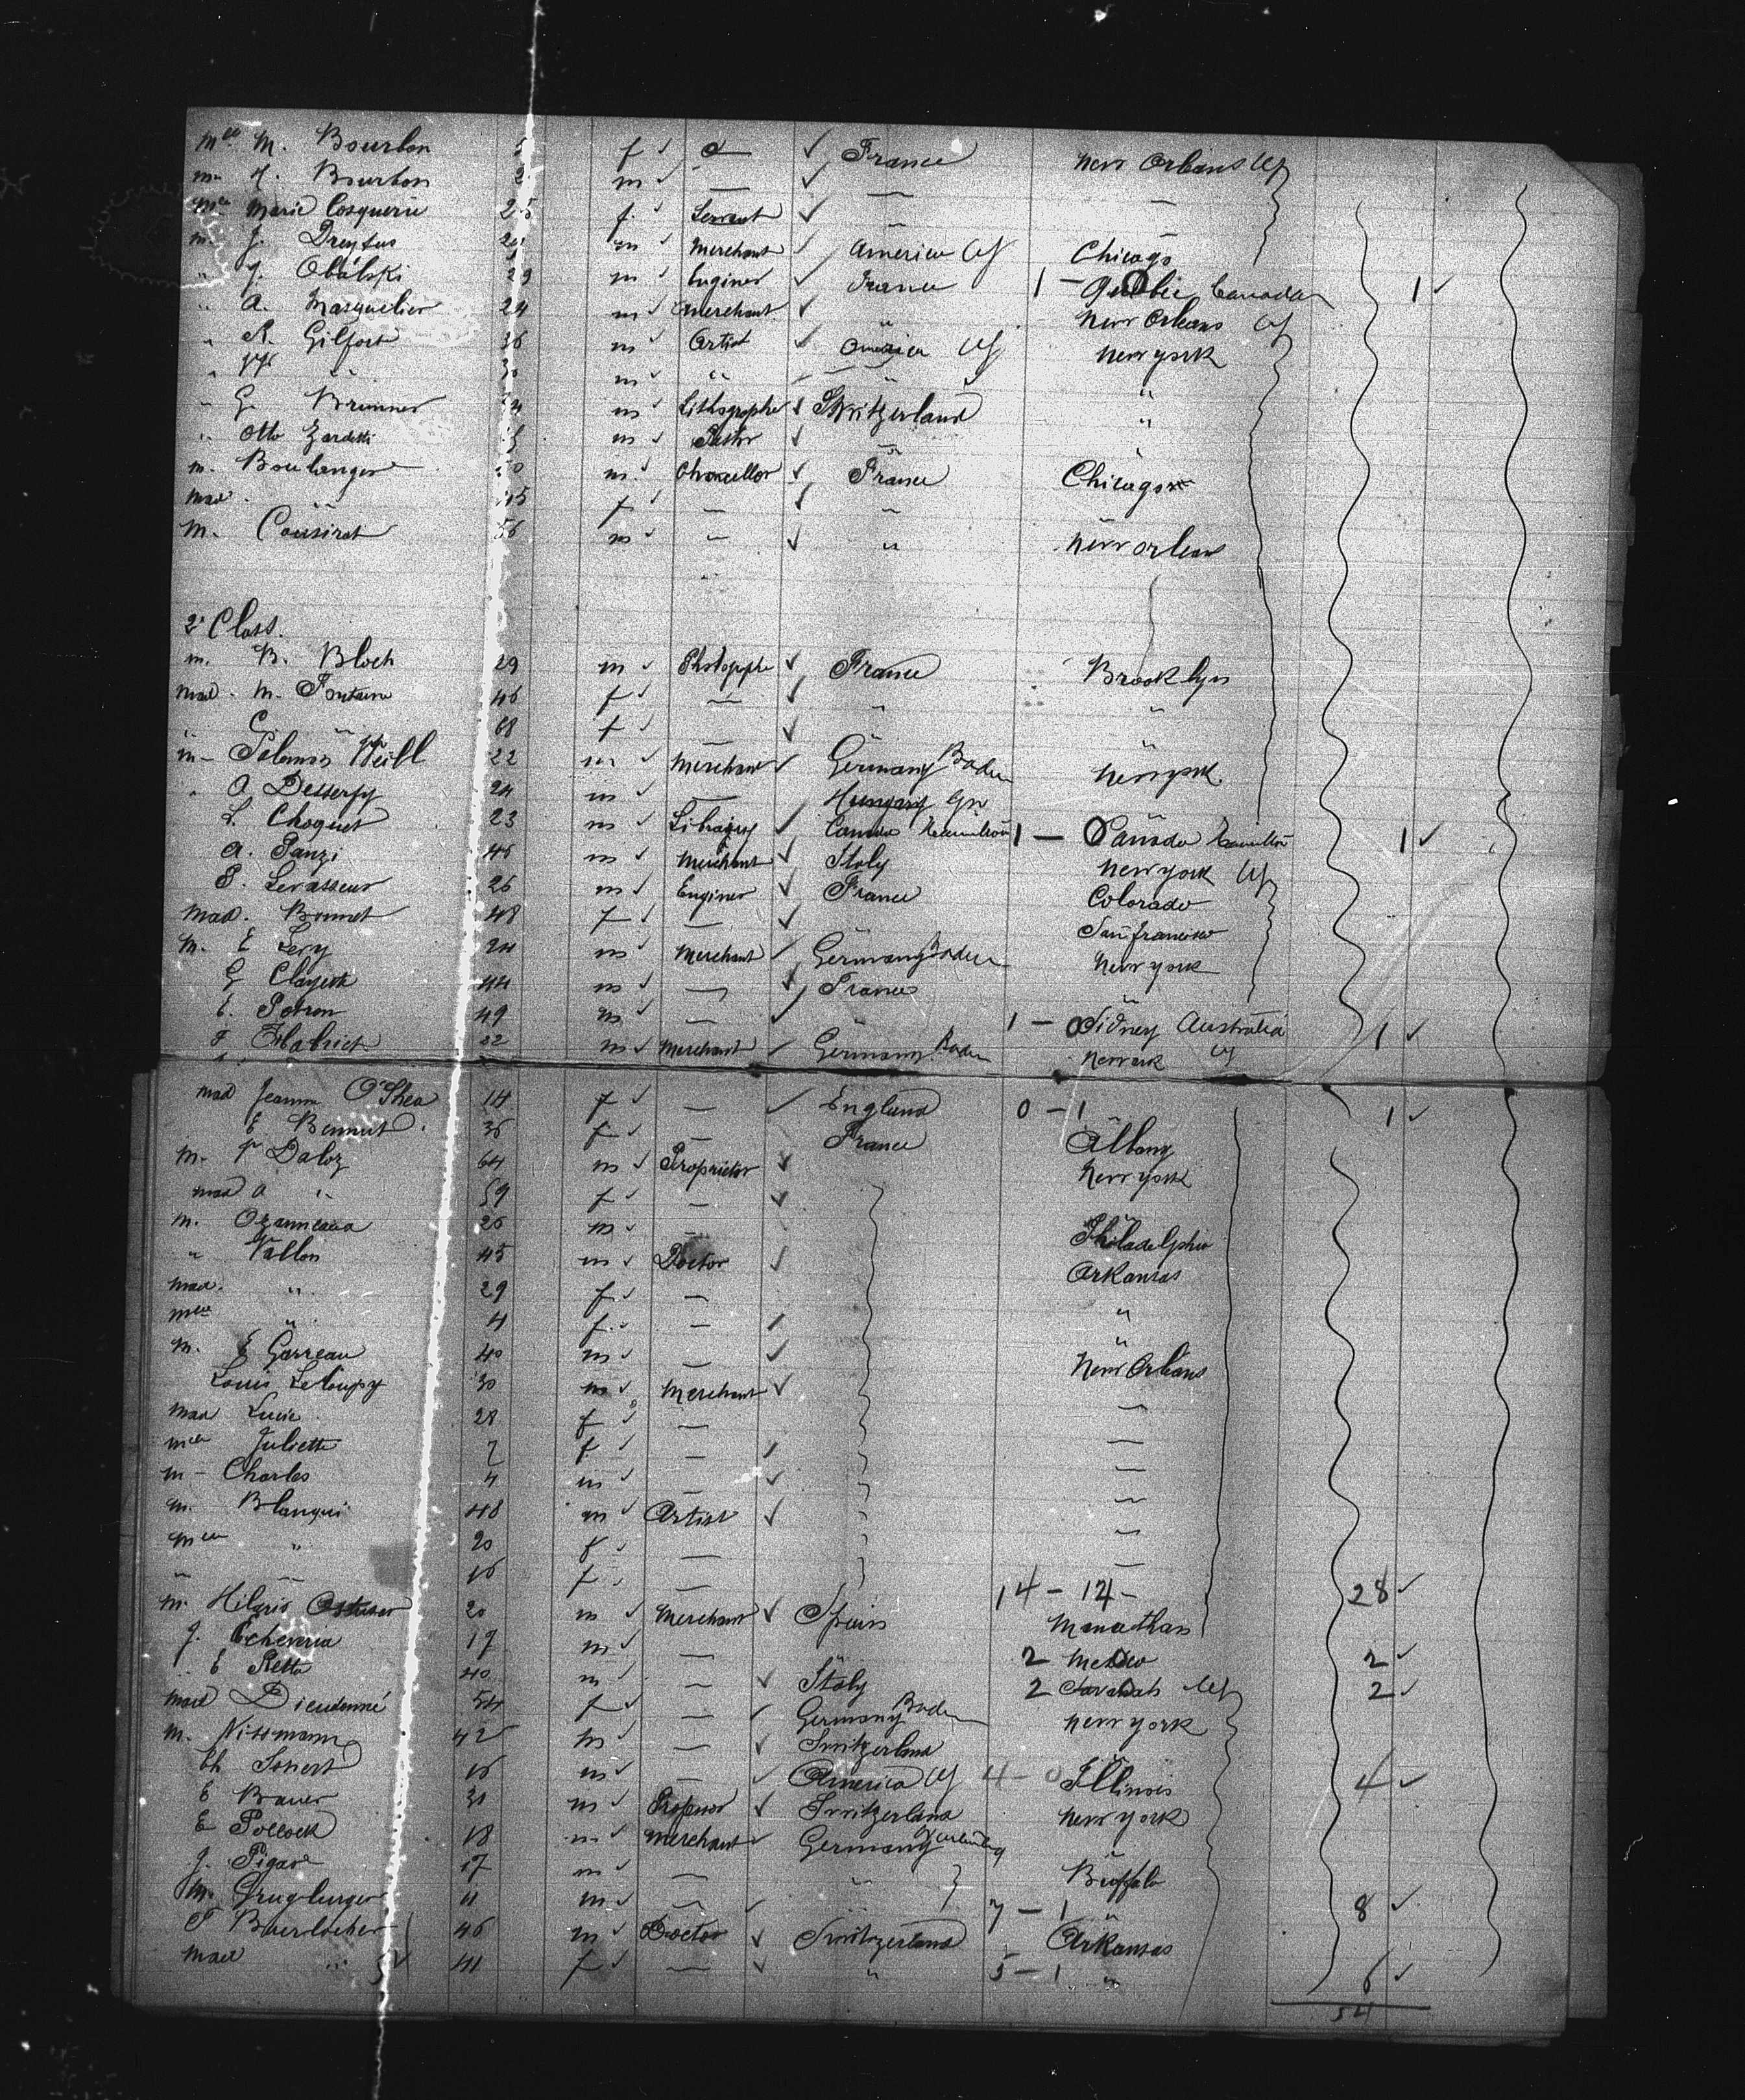 Mlle M. Bourbon f — France New Orleans US
m- H. Bourbon m — — —
Mlle Marie Cosquerie 25 f. Servant
m. J. Dreyfus m Merchant America US Chicago
" J. Obalski 29 m Enginer France 1 — Quebec Canada 1
" A. Masquelier 24 m Merchant " New Orleans US
" R. Gilfort 36 m Artist America US New york
" " 30 m " " "
" G. Brunner m Lithographe Switzerland "
" Otto Zardetti m Pastor "
m. Boulanger m. Chancellor France Chicago
mad. " f — "
M. Cousirat 56 m — " New orleans
2d Class.
m. B. Bloch 29 m Photogphe France Brooklyn
mad. M. Fontaine 46 f — " "
" C. " 68 f — "
m- Salomon Weill 22 m Merchant Germany Baden New york.
" O Desserfy 24 m — Hungary
L. Choquet 23 m Canada Hamilton 1 — Canada Hamilton 1
A. Panzi 46 m Merchant Italy New york US
P. Levasseur 26 m Enginer France Colorado
Mad. Bonnet 48 f — San francisco
M. E Levy 24 m Merchant Germany Baden New york
G 44 m — France "
E. Potron 49 m — " 1 — Sidney Australia 1
F. 22 m Merchant Germany Baden Newark US
mad Jeanne O'Shea 14 f — England 0 — 1 1
E 36 f — France Albany
M. F Daloz 64 m Proprietor New york
mad A " 59 f — "
M. Ozanneaua 26 m — Philadelphia
" Vallon 45 m Doctor Arkansas
mad. " 29 f — "
mlle " 4 f. — "
M. E Garreau 40 m — New Orleans
Louis Leloupy 30 m Merchant —
Mad Lucie 28 f — —
mlle Juliette 7 f — —
m- Charles 4 m — —
m. Blanqui 48 m Artist —
Mlle " 20 f — —
" — 16 f — 14 — 14 — 28
m. Hilario 20 m Merchant Spain Manathan
J. Echeverria 17 m — 2 Mexico 2
" E Retta 40 m — Italy 2 Savanah US 2
Mad Dieudonné 54 f — Germany Baden New york
M. Nissmann 42 m — Switzerland "
Ch 16 m — America US 4 — 0 Illinois 4
E Bauer 31 m Professor Switzerland New york
E Pollock 18 m Merchant Germany "
J. Pigase 17 m — " Buffalo
M. 11 m — 7 — 1 " 8
F Baerlocher 46 m Doctor Switzerland Arkansas
Mad " 41 f — " 5 — 1 " 6
54